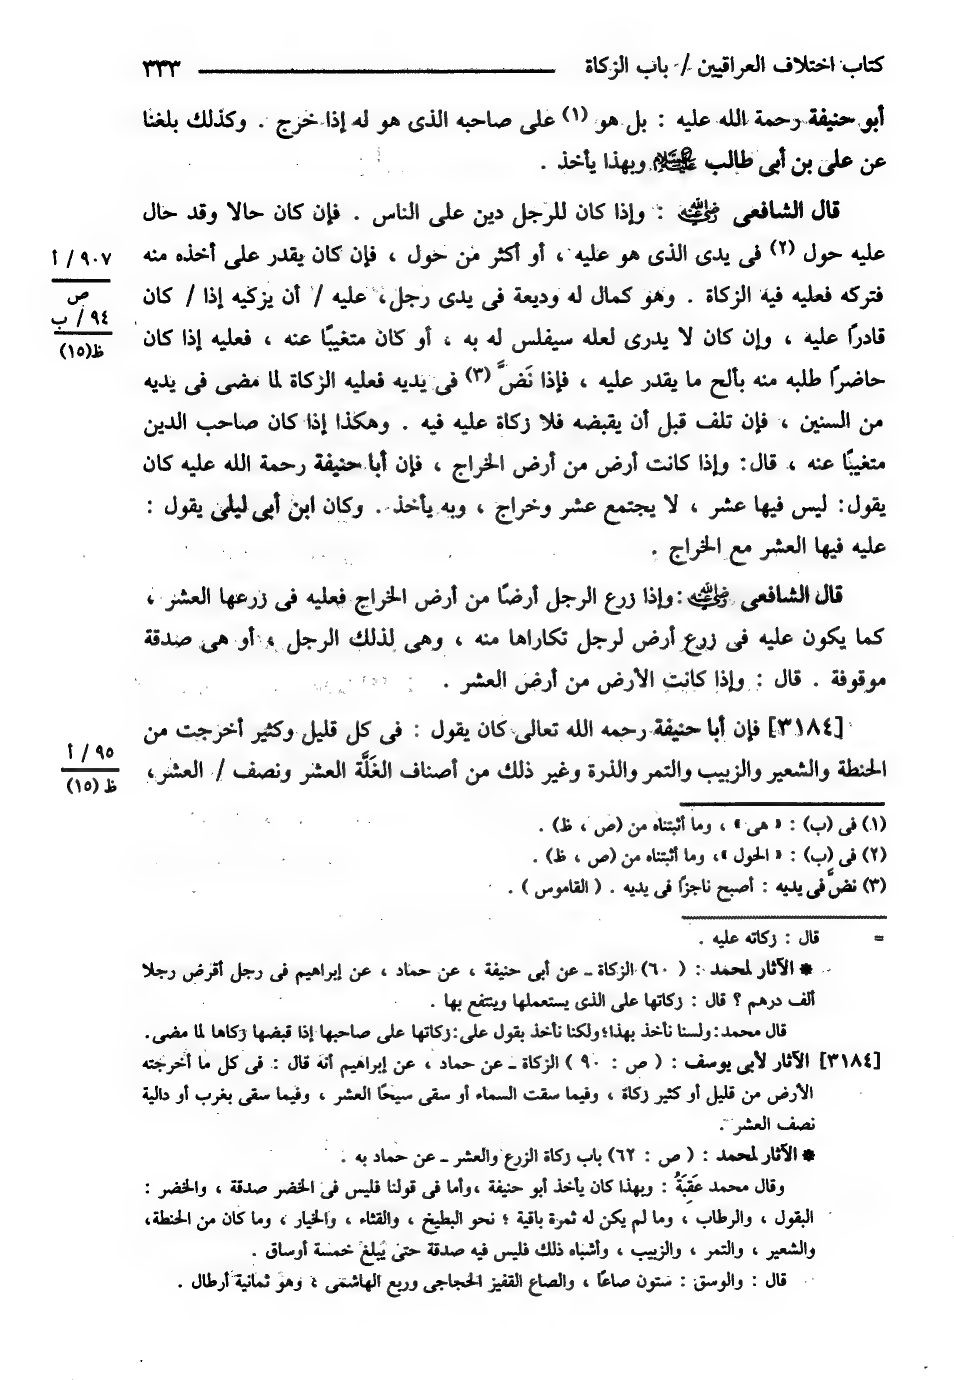 كتاب اختلاف العراقيين / باب الزكاة ٣٣٣
أبو حنيفة رحمة الله عليه : بل هو (١) على صاحبه الذى هو له إذا خرج . وكذلك بلغنا
عن على بن أبى طالب عليه السلام وبهذا يأخذ .
قال الشافعى رضي الله عنه : وإذا كان للرجل دين على الناس . فإن كان حالا وقد حال
عليه حول (٢) فى يدى الذى هو عليه ، أو أكثر من حول ، فإن كان يقدر على أخذه منه
٩٠٧ / أ
فتركه فعليه فيه الزكاة . وهو كمال له وديعة فى يدى رجل، عليه / أن يزكيه إذا / كان
ص
٩٤ / ب
قادرًا عليه ، وإن كان لا يدرى لعله سيفلس له به ، أو كان متغيبًا عنه ، فعليه إذا كان
ظ(١٥)
حاضرًا طلبه منه بألح ما يقدر عليه ، فإذا نَضَّ (٣) فى يديه فعليه الزكاة لما مضى فى يديه
من السنين ، فإن تلف قبل أن يقبضه فلا زكاة عليه فيه . وهكذا إذا كان صاحب الدين
متغيبًا عنه ، قال: وإذا كانت أرض من أرض الخراج ، فإن أبا حنيفة رحمة الله عليه كان
يقول: ليس فيها عشر ، لا يجتمع عشر وخراج ، وبه يأخذ . وكان ابن أبى ليلى يقول :
عليه فيها العشر مع الخراج .
قال الشافعى رضي الله عنه :وإذا زرع الرجل أرضًا من أرض الخراج فعليه فى زرعها العشر ،
كما يكون عليه فى زرع أرض لرجل تكاراها منه ، وهى لذلك الرجل ، أو هى صدقة
موقوفة . قال : وإذا كانت الأرض من أرض العشر .
[٣١٨٤] فإن أبا حنيفة رحمه الله تعالى كان يقول : فى كل قليل وكثير أخرجت من
٩٥ / أ
الحنطة والشعير والزبيب والتمر والذرة وغير ذلك من أصناف الغَلَّة العشر ونصف / العشر،
ظ (١٥)
(١) فى (ب) : « هى » ، وما أثبتناه من (ص ، ظ) .
(٢) فى (ب) : « الحول »، وما أثبتناه من (ص ، ظ) .
(٣) نضَّ فى يديه : أصبح ناجزًا فى يديه . ( القاموس ) .
= قال : زكاته عليه .
* الآثار لمحمد : ( ٦٠) الزكاة ـ عن أبى حنيفة ، عن حماد ، عن إبراهيم فى رجل أقرض رجلا
ألف درهم ؟ قال : زكاتها على الذى يستعملها وينتفع بها .
قال محمد:ولسنا نأخذ بهذا؛ولكنا نأخذ بقول على:زكاتها على صاحبها إذا قبضها زكاها لما مضى.
[٣١٨٤] الآثار لأبى يوسف : ( ص : ٩٠ ) الزكاة ـ عن حماد ، عن إبراهيم أنه قال : فى كل ما أخرجته
الأرض من قليل أو كثير زكاة ، وفيما سقت السماء أو سقى سيحًا العشر ، وفيما سقى بغرب أو دالية
نصف العشر .
* الآثار لمحمد : ( ص : ٦٢) باب زكاة الزرع والعشر ـ عن حماد به .
وقال محمد عَقِبَهُ : وبهذا كان يأخذ أبو حنيفة ،وأما فى قولنا فليس فى الخضر صدقة ، والخضر :
البقول ، والرطاب ، وما لم يكن له ثمرة باقية ؛ نحو البطيخ ، والقثاء ، والخيار ، وما كان من الحنطة،
والشعير ، والتمر ، والزبيب ، وأشباه ذلك فليس فيه صدقة حتى يُبلغ خمسة أوساق .
قال : والوسق : ستون صاعًا ، والصاع القفيز الحجاجى وربع الهاشمى ، وهو ثمانية أرطال .